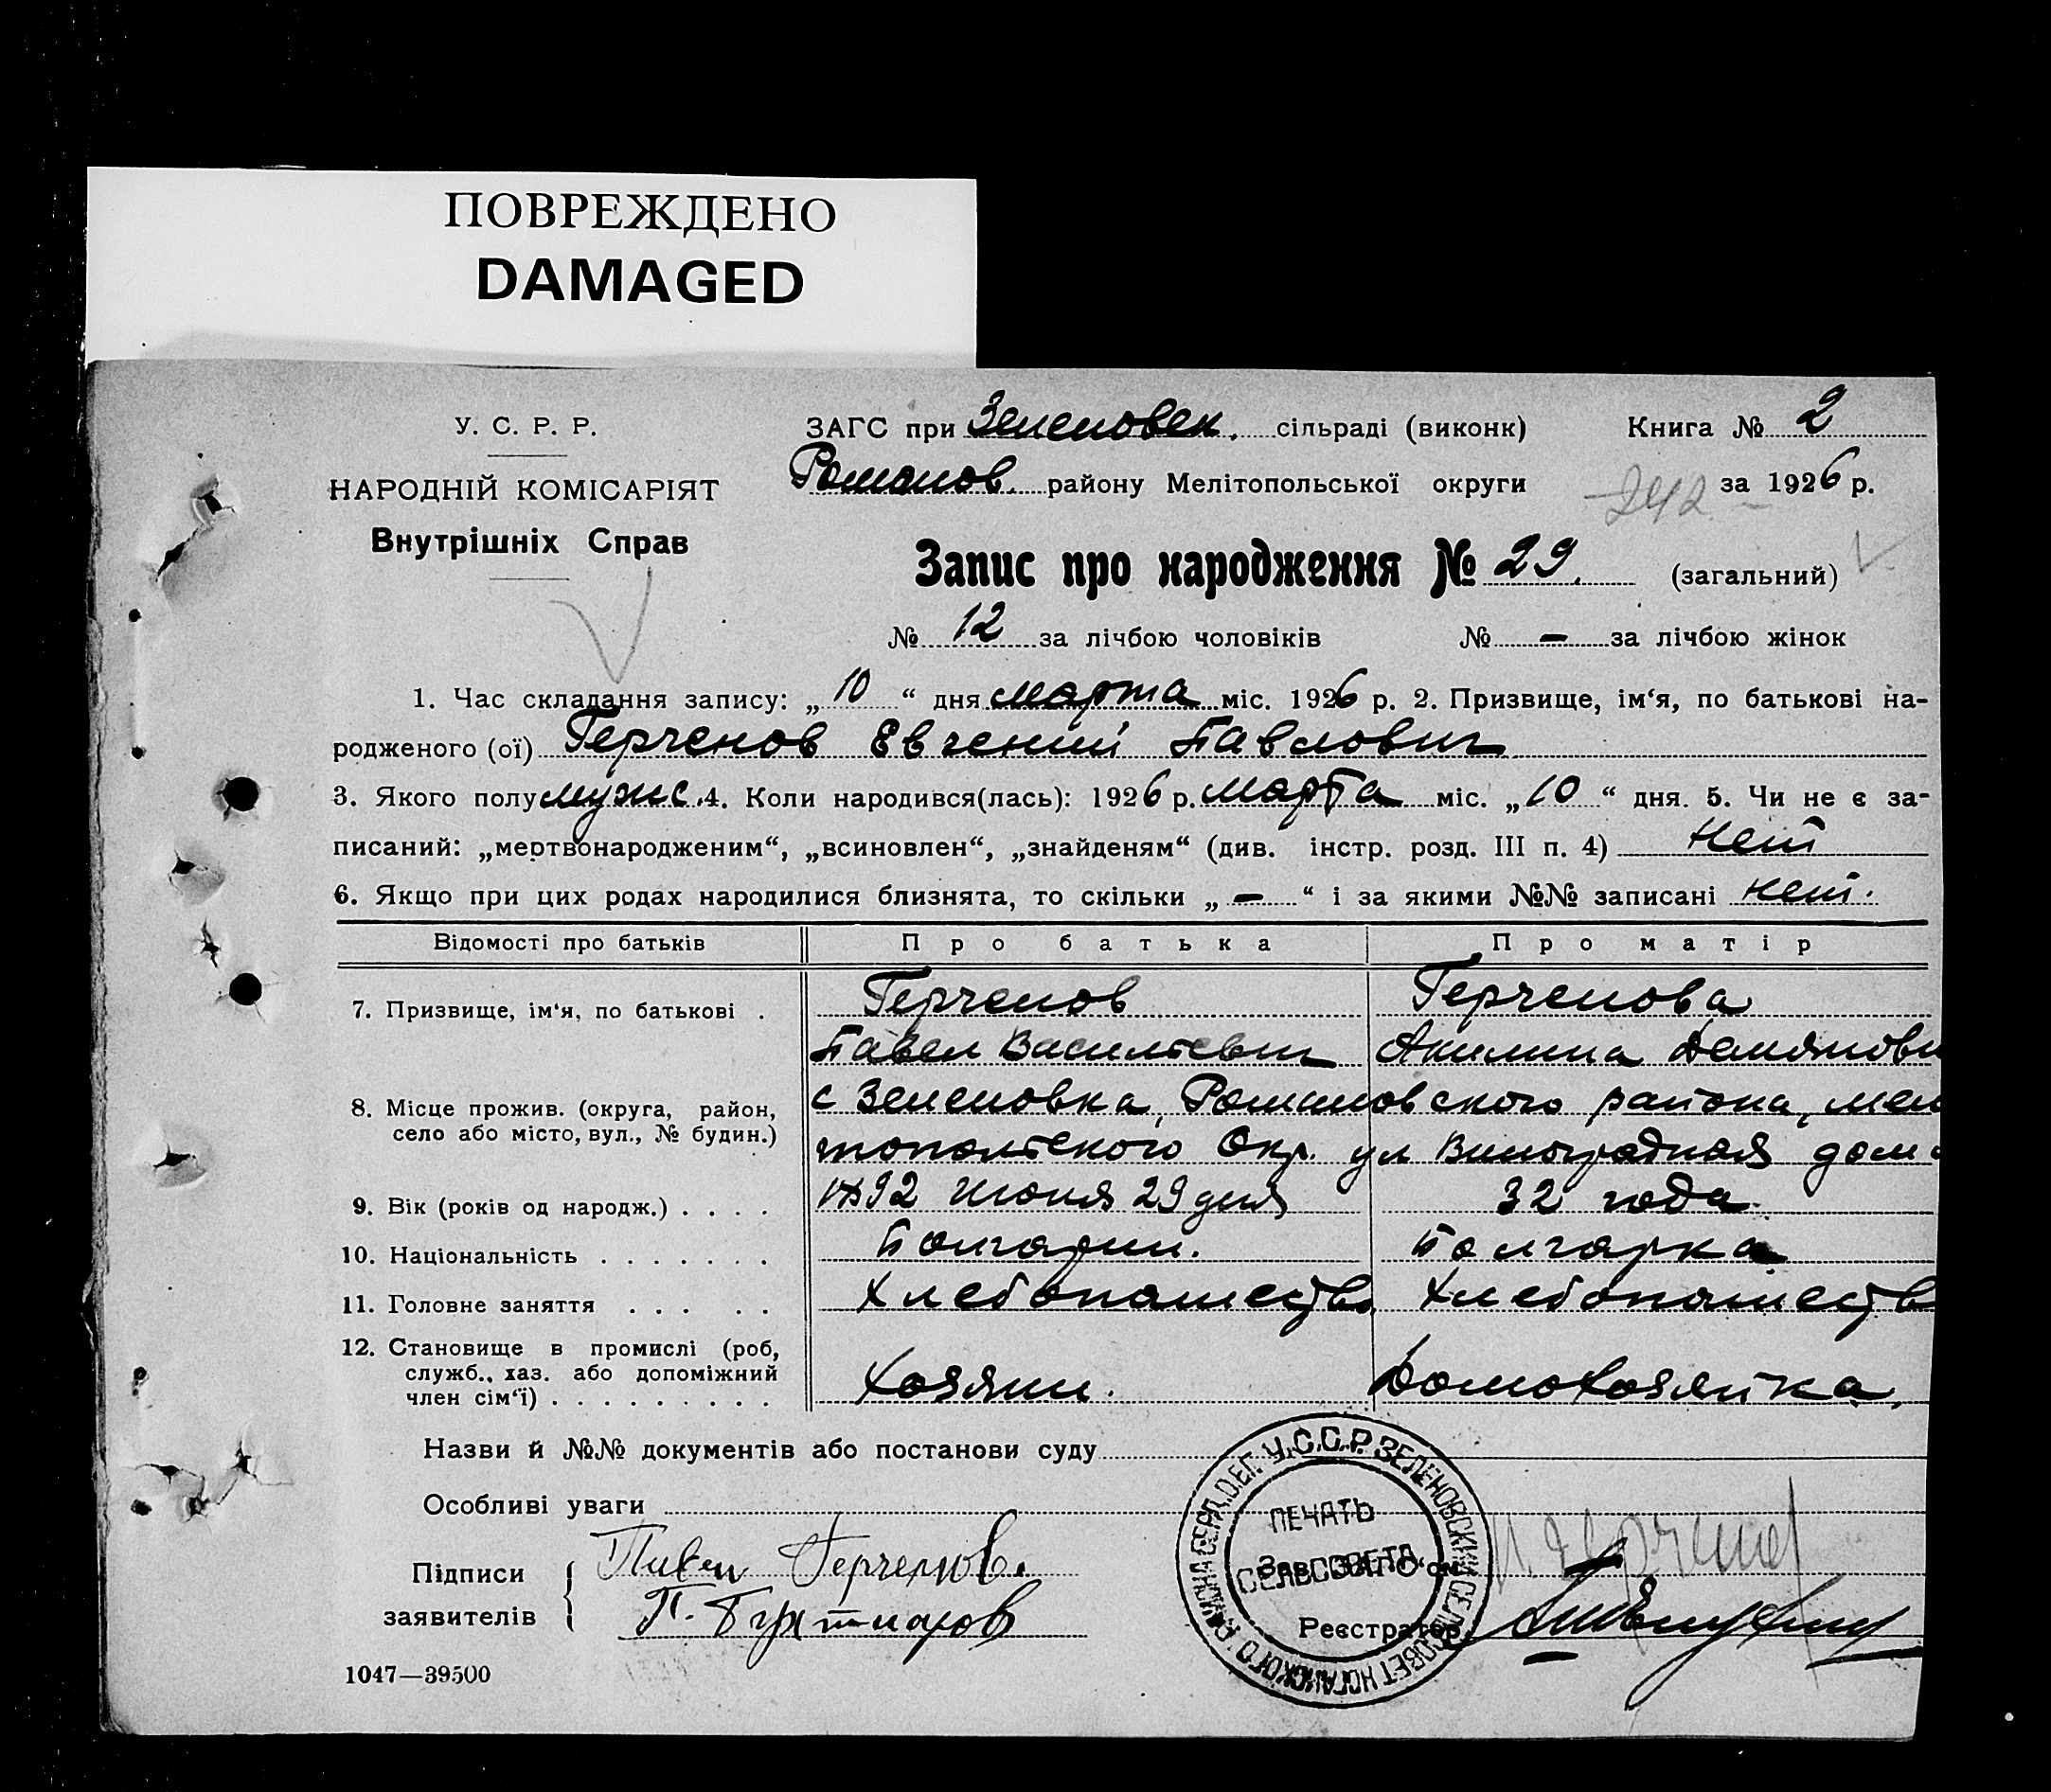 ПОВРЕЖДЕНО
DAMAGED
У. С. Р. Р.
НАРОДНІЙ КОМІСАРІЯТ
Внутрішніх Справ
ЗАГС при Зеленовск. сільраді (виконк) Книга № 2
Романов. району Мелітопольської округи 242 за 1926 р.
Запис про народження № 29. (загальний)
№ 12 за лічбою чоловіків № — за лічбою жінок
1. Час складання запису: „ 10 “ дня марта міс. 1926 р. 2. Призвище, ім‘я, по батькові на-
родженого (ої) Герченов Евгений Павлович
3. Якого полу мужс. 4. Коли народився(лась): 1926 р. марта міс. „ 10 “ дня. 5. Чи не є за-
писаний: „мертвонародженим“, „всиновлен“, „знайденям“ (див. інстр. розд. III п. 4) Нет
6. Якщо при цих родах народилися близнята, то скільки „ — “ і за якими №№ записані нет.
Відомості про батьків Про батька Про матір
7. Призвище, ім‘я, по батькові . Герченов Герченова
Павел Василевич Акилина Демяновн
8. Місце прожив. (округа, район, с Зеленовка, Романовского района, мели
село або місто, вул., № будин.) топольского Окр. ул Виноградная дом
9. Вік (років од народж.) . . . . 1892 июня 29 дня 32 года.
10. Національність . . . . . . . Болгарин. Болгарка
11. Головне заняття . . . . . Хлебопашество Хлебопашеств
12. Становище в промислі (роб,
служб., хаз. або допоміжний
член сім‘ї) . . . . . . . . . Хозяин. Домохозяйка.
Назви й №№ документів або постанови суду
Особливі уваги
Підписи Павел Герченов.
заявителів П. Буртиаров
Зав. „ЗАГС‘ом“ Герчено
Реєстратор
У.С.С.Р. ЗЕЛЕНОВСКИЙ СЕЛЬСОВЕТ НОГАЙСКОГО РАЙОНА БЕРД. ОЕГ.
ПЕЧАТЬ
СЕЛЬСОВЕТА
1047—39500